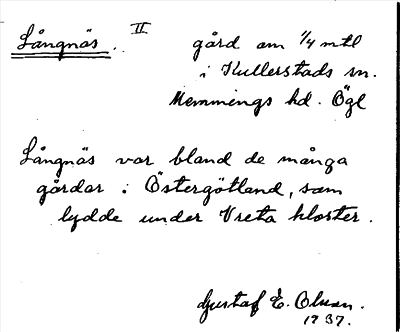 Långnäs. II gård om 1/4 mtl
i Kullerstads sn.
Memmings hd. Ögl
Långnäs var bland de många
gårdar i Östergötland, som
lydde under Vreta kloster.
Gustaf E. Olsson.
1937.